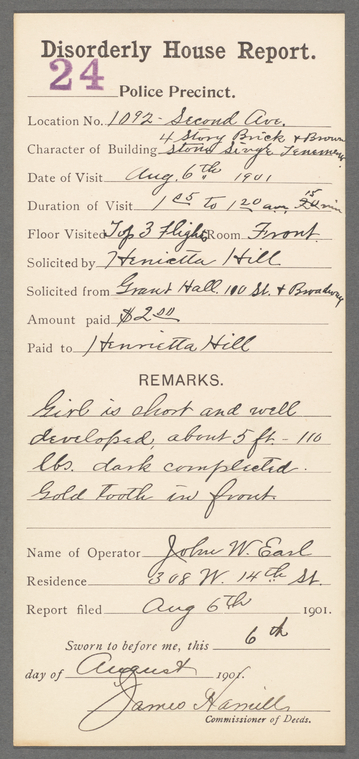 Disorderly House Report.
24
Police Precinct.
Location No. 1092 - Second Ave.
4 Story Brick & Brown
Character of Building Stone Single Tenement
Date of Visit Aug. 6th 1901
Duration of Visit 1 05 to 1 20 am, 15 min
Floor Visited Top 3 flights Room Front.
Solicited by Henrietta Hill
Solicited from Grant Hall. 100 St. & Broadway
Amount paid $2.00
Paid to Henrietta Hill
REMARKS.
Girl is short and well
developed, about 5 ft. - 110
lbs. dark complected.
Gold tooth in front.
Name of Operator John W. Earl
Residence 308 W. 14th St.
Report filed Aug 6th 1901.
Sworn to before me, this 6th
day of August 1901.
James Hamill
Commissioner of Deeds.